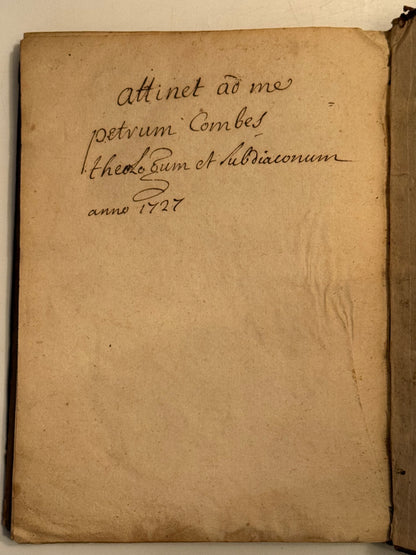 attinet ad me
petrum Combes
theologum et subdiaconum
anno 1727